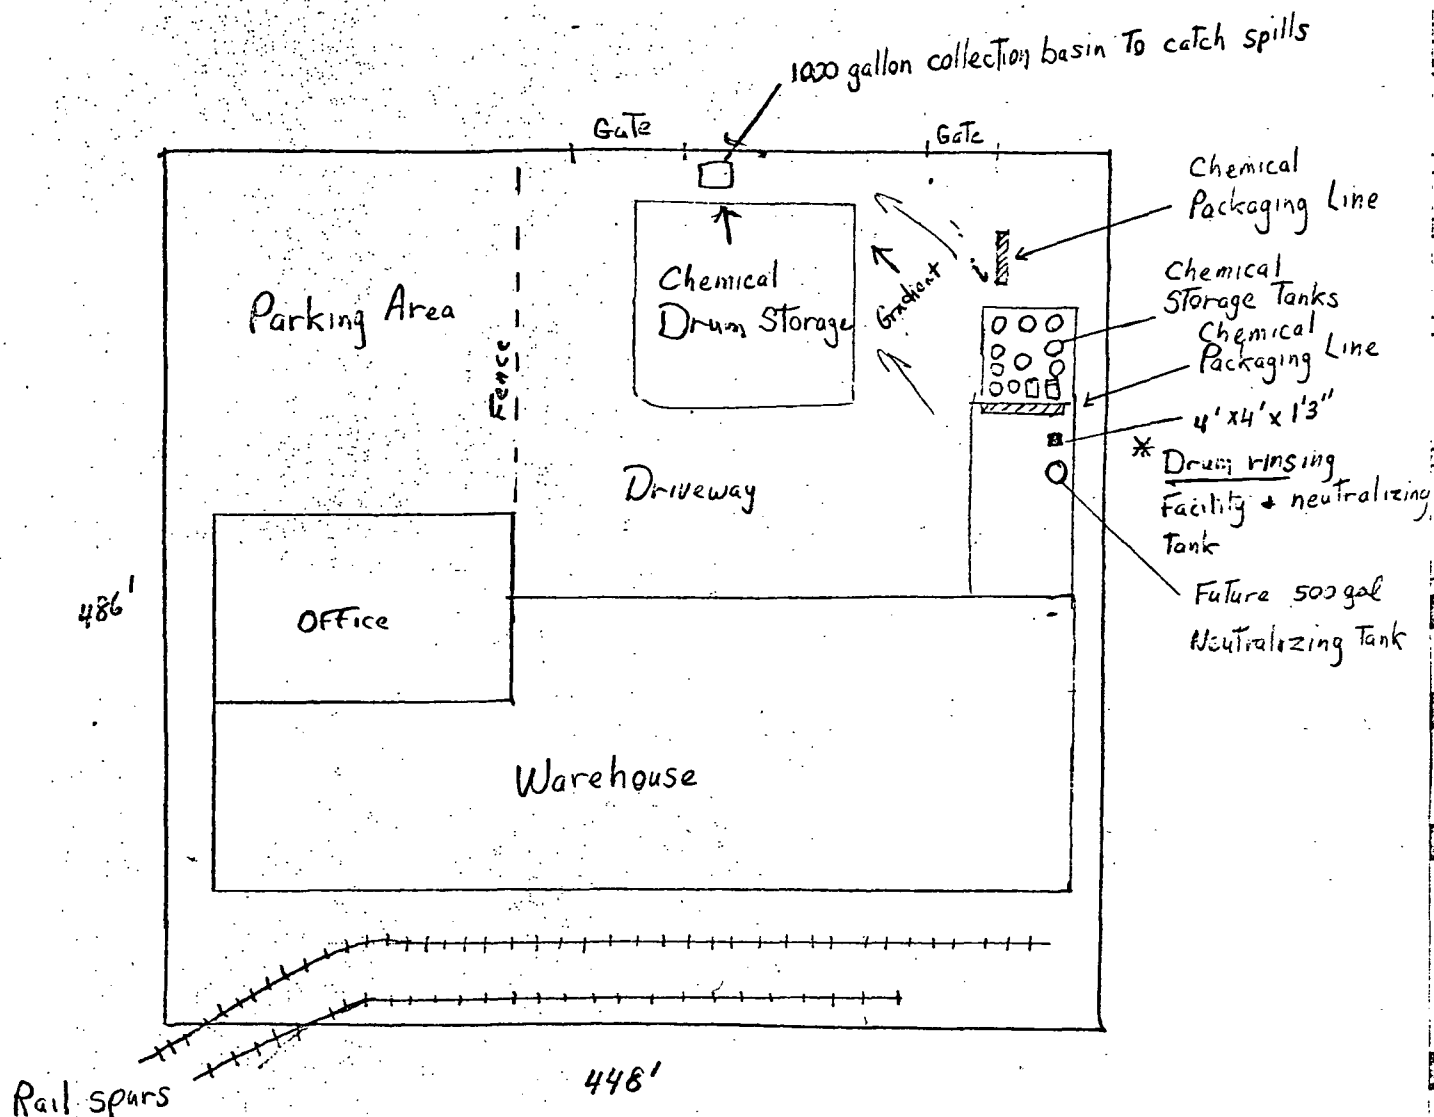 1000 gallon collection basin To catch spills
Gate
Gate
Chemical
Packaging Line
Chemical
Storage Tanks
Chemical
Packaging Line
4' x 4' x 1'3"
* Drum rinsing
Facility & neutralizing
Tank
Future 500 gal
Neutralizing Tank
Parking Area
Fence
Chemical
Drum Storage
Gradient
Driveway
486'
Office
Warehouse
448'
Rail spurs